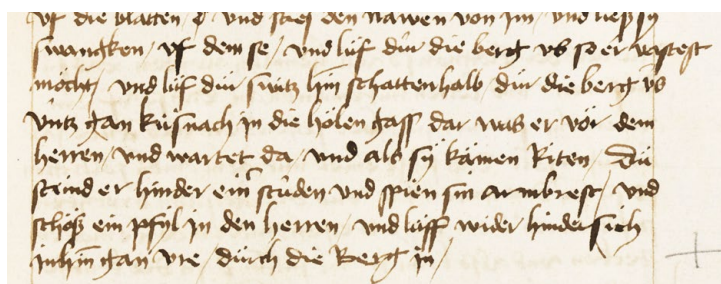 vf die blatten / vnd sties den nawen von im / vnd liess jn
swangken / vf dem se / vnd lüf dür die berg vs so er vastest
möcht / vnd lüf dür switz hin schattenhalb dür die berg vs
vntz gan küsnach in die holen gass dar was er vor dem
herren / vnd wartet da / vnd als sÿ kämen Riten / Dü
stünd er hinder einr stüden vnd spien sin armbrest / vnd
schöss ein pfyl in den herren / vnd lüff wider hindersich
inhin gan vre / dürch die Berg in /